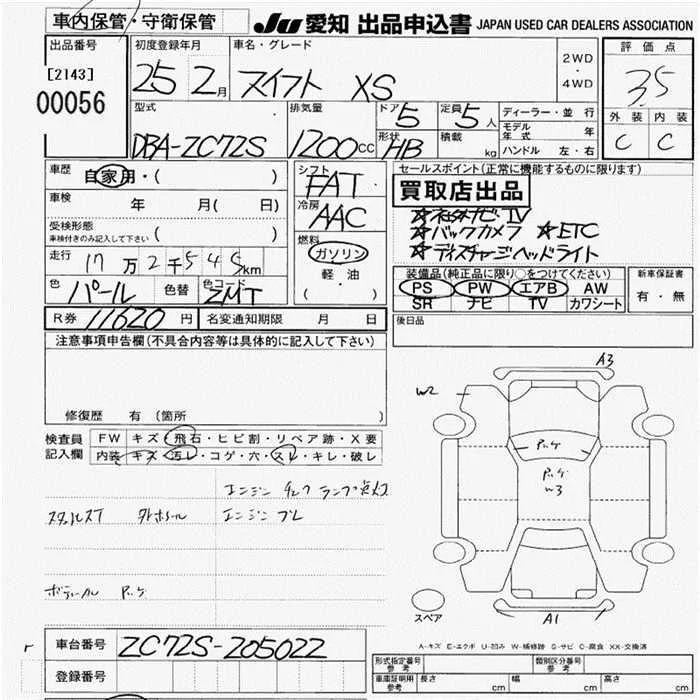 車内保管・守衛保管
JU 愛知 出品申込書 JAPAN USED CAR DEALERS ASSOCIATION
出品番号
[2143]
00056
初度登録年月
25 2月
車名・グレード
スイフト XS
2WD
・
4WD
評価点
3.5
外装 内装
C C
型式
DBA-ZC72S
排気量
1200cc
ドア 5
定員 5人
形状 HB
積載 kg
ディーラー・並行
モデル年式 年
ハンドル 左・右
車歴 自家用・( )
車検 年 月( 日)
受検形態
車検付きのみ記入して下さい ( )
走行 17万2千545km
色 パール 色替 色コード ZMT
シフト
FAT
冷房
AAC
燃料
ガソリン
・
軽油
・
( )
セールスポイント(正常に機能するものに限ります)
買取店出品
☆バックカメラ ☆ETC
☆ディスチャージヘッドライト
装備品(純正品に限り○をつけてください)
PS PW エアB AW
SR ナビ TV カワシート
新車保証書
有・無
R券 11620円 名変通知期限 月 日
後日品
注意事項申告欄(不具合内容等は具体的に記入して下さい)
修復歴 有 (箇所 )
検査員
記入欄
FW キズ・飛石・ヒビ割・リペア跡・X要
内装 キズ・汚レ・コゲ・穴・スレ・キレ・破レ
エンジン チェック ランプ点灯
エンジン ブレ
A3
W2
W3
A1
スペア
A-キズ E-エクボ U-凹み W-補修跡 S-サビ C-腐食 XX-交換済
車台番号 ZC72S-205022
登録番号
形式指定番号
参考
類別区分番号
参考
車庫証明用
参考
長さ cm 幅 cm 高さ cm